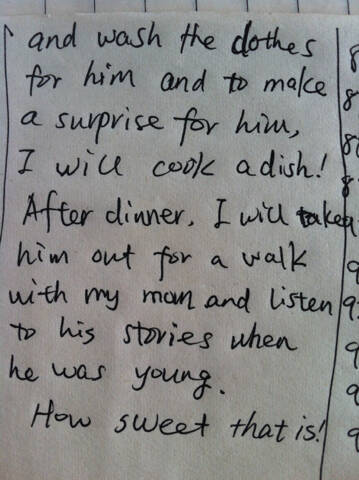 and wash the clothes
for him and to make
a surprise for him,
I will cook a dish!
After dinner, I will take
him out for a walk
with my mom and listen
to his stories when
he was young.
How sweet that is!